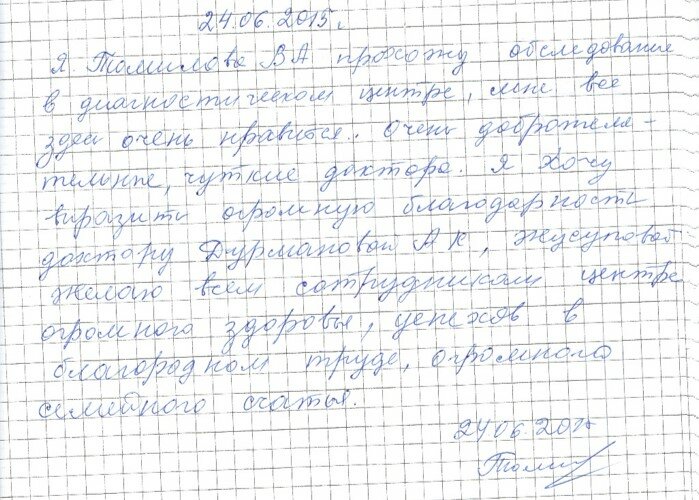 24.06.2015г.
Я Томилова ВА прохожу обследование
в диагностическом центре, мне все
здесь очень нравится. Очень доброжела-
тельные, чуткие доктора. Я хочу
выразить огромную благодарность
доктору Дурмановой А К, Жусуповой
желаю всем сотрудникам центра
огромного здоровья, успехов в
благородном труде, огромного
семейного счастья.
24 06.2015
Томил